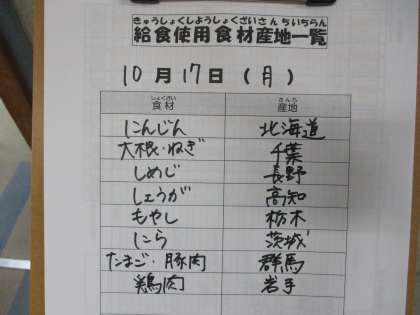 きゅうしょくしようしょくざいさんちいちらん
給食使用食材産地一覧
10月17日(月)
しょくざい さんち
食材 産地
にんじん 北海道
大根・ねぎ 千葉
しめじ 長野
しょうが 高知
もやし 栃木
にら 茨城
たまご・豚肉 群馬
鶏肉 岩手